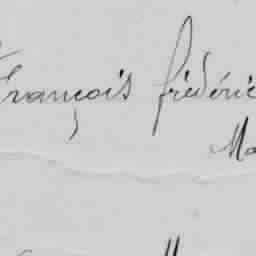 François frédéric
Ma